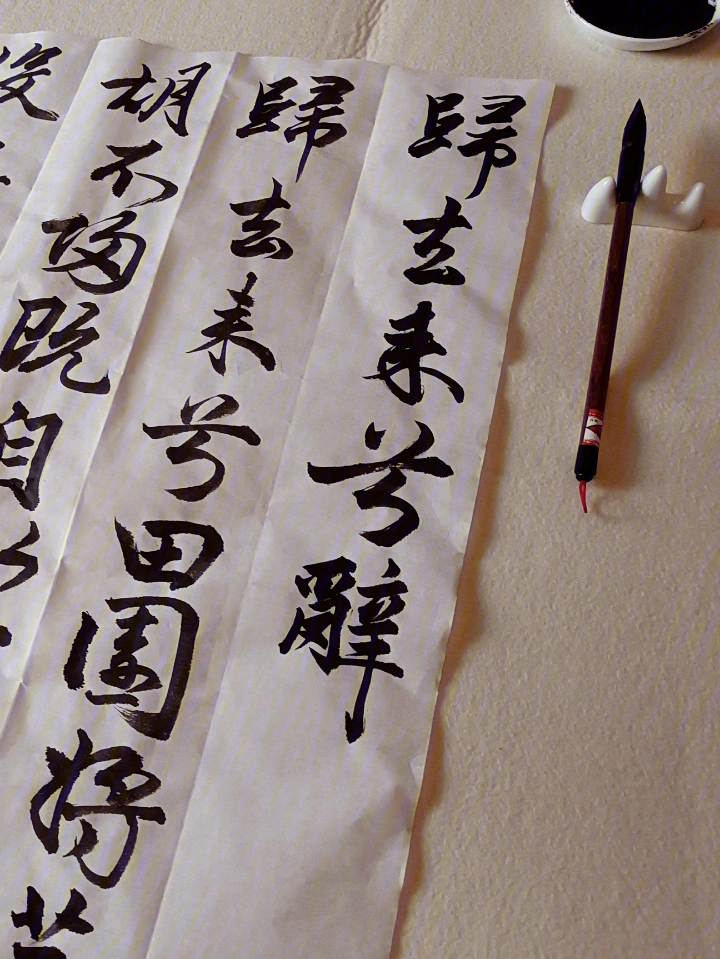 歸去来兮辭
歸去来兮田園將
胡不歸既自以
役